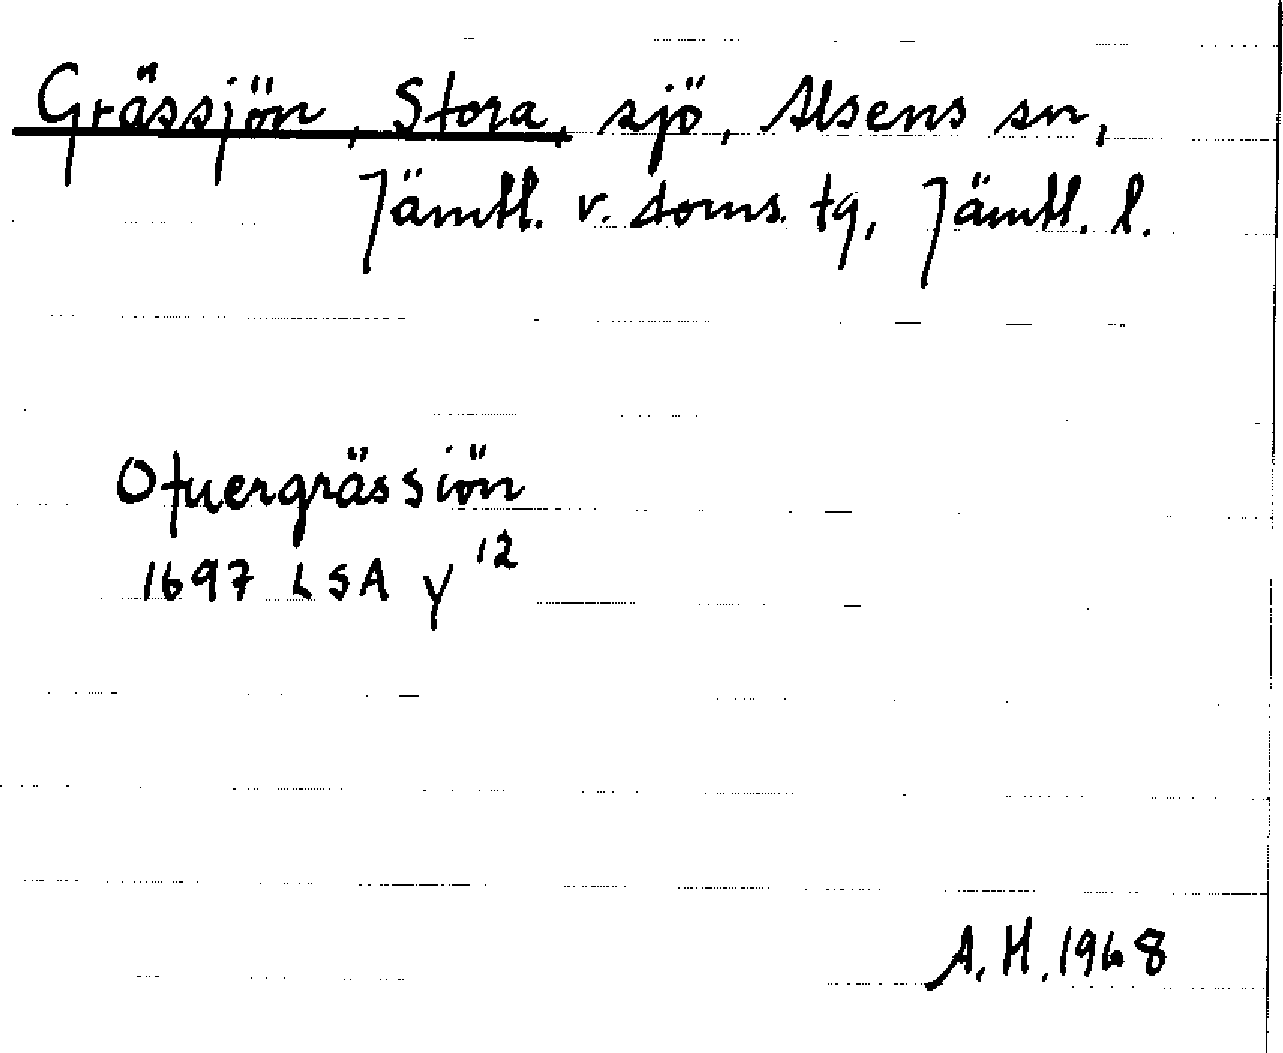 Grässjön, Stora, sjö, Alsens sn,
Jämtl. v. doms. tg, Jämtl. l.
Ofuergrässiön
1697 LSA y 12
A. H. 1968